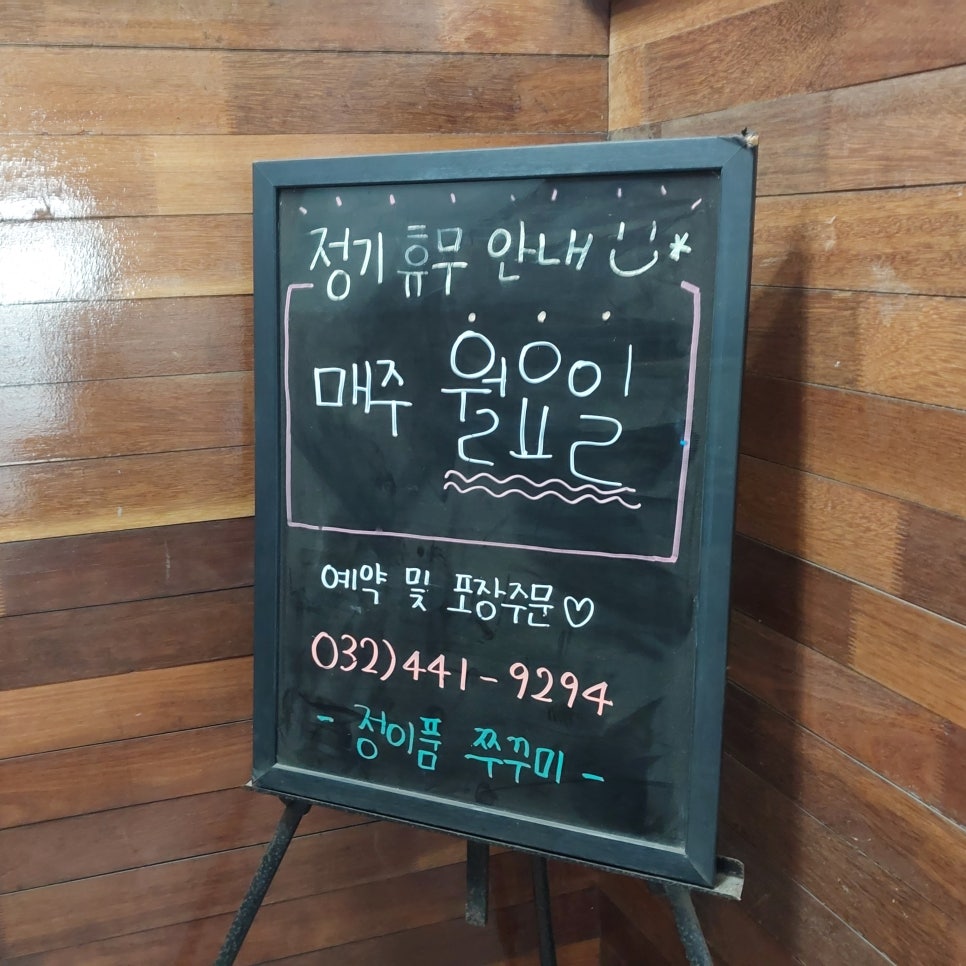 정기 휴무 안내
매주 월요일
예약 및 포장주문♡
032)441-9294
- 정이품 쭈꾸미 -